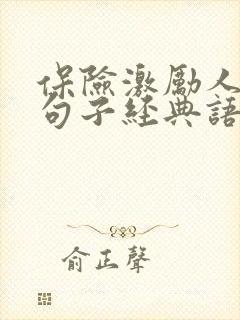 保險激勵人
句子經典語
俞正聲